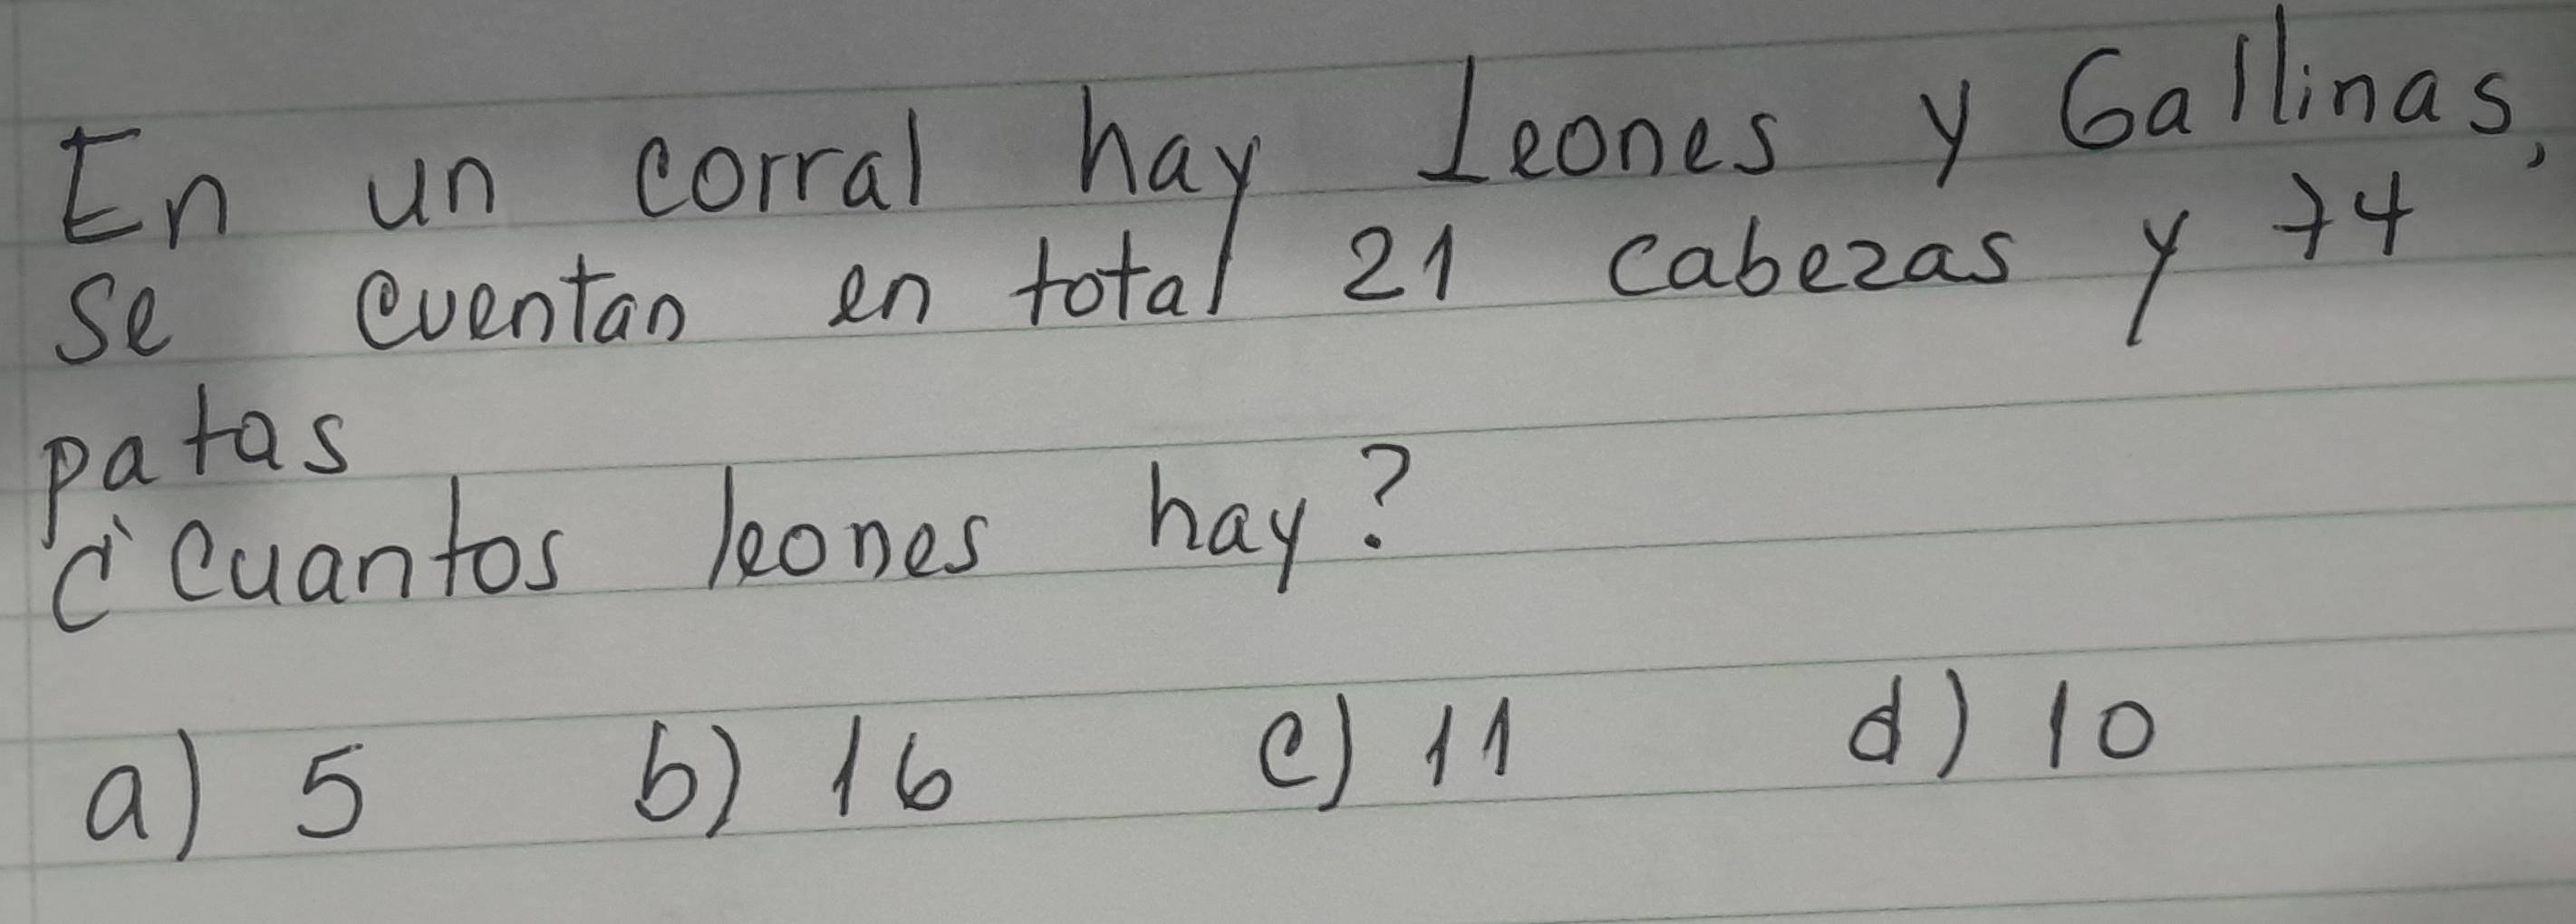 En un corral hay Leones y Gallinas,
se cuentan en total 21 cabezas y 74
patas
¿Cuantos leones hay?
a) 5 b) 16 c) 11 d) 10